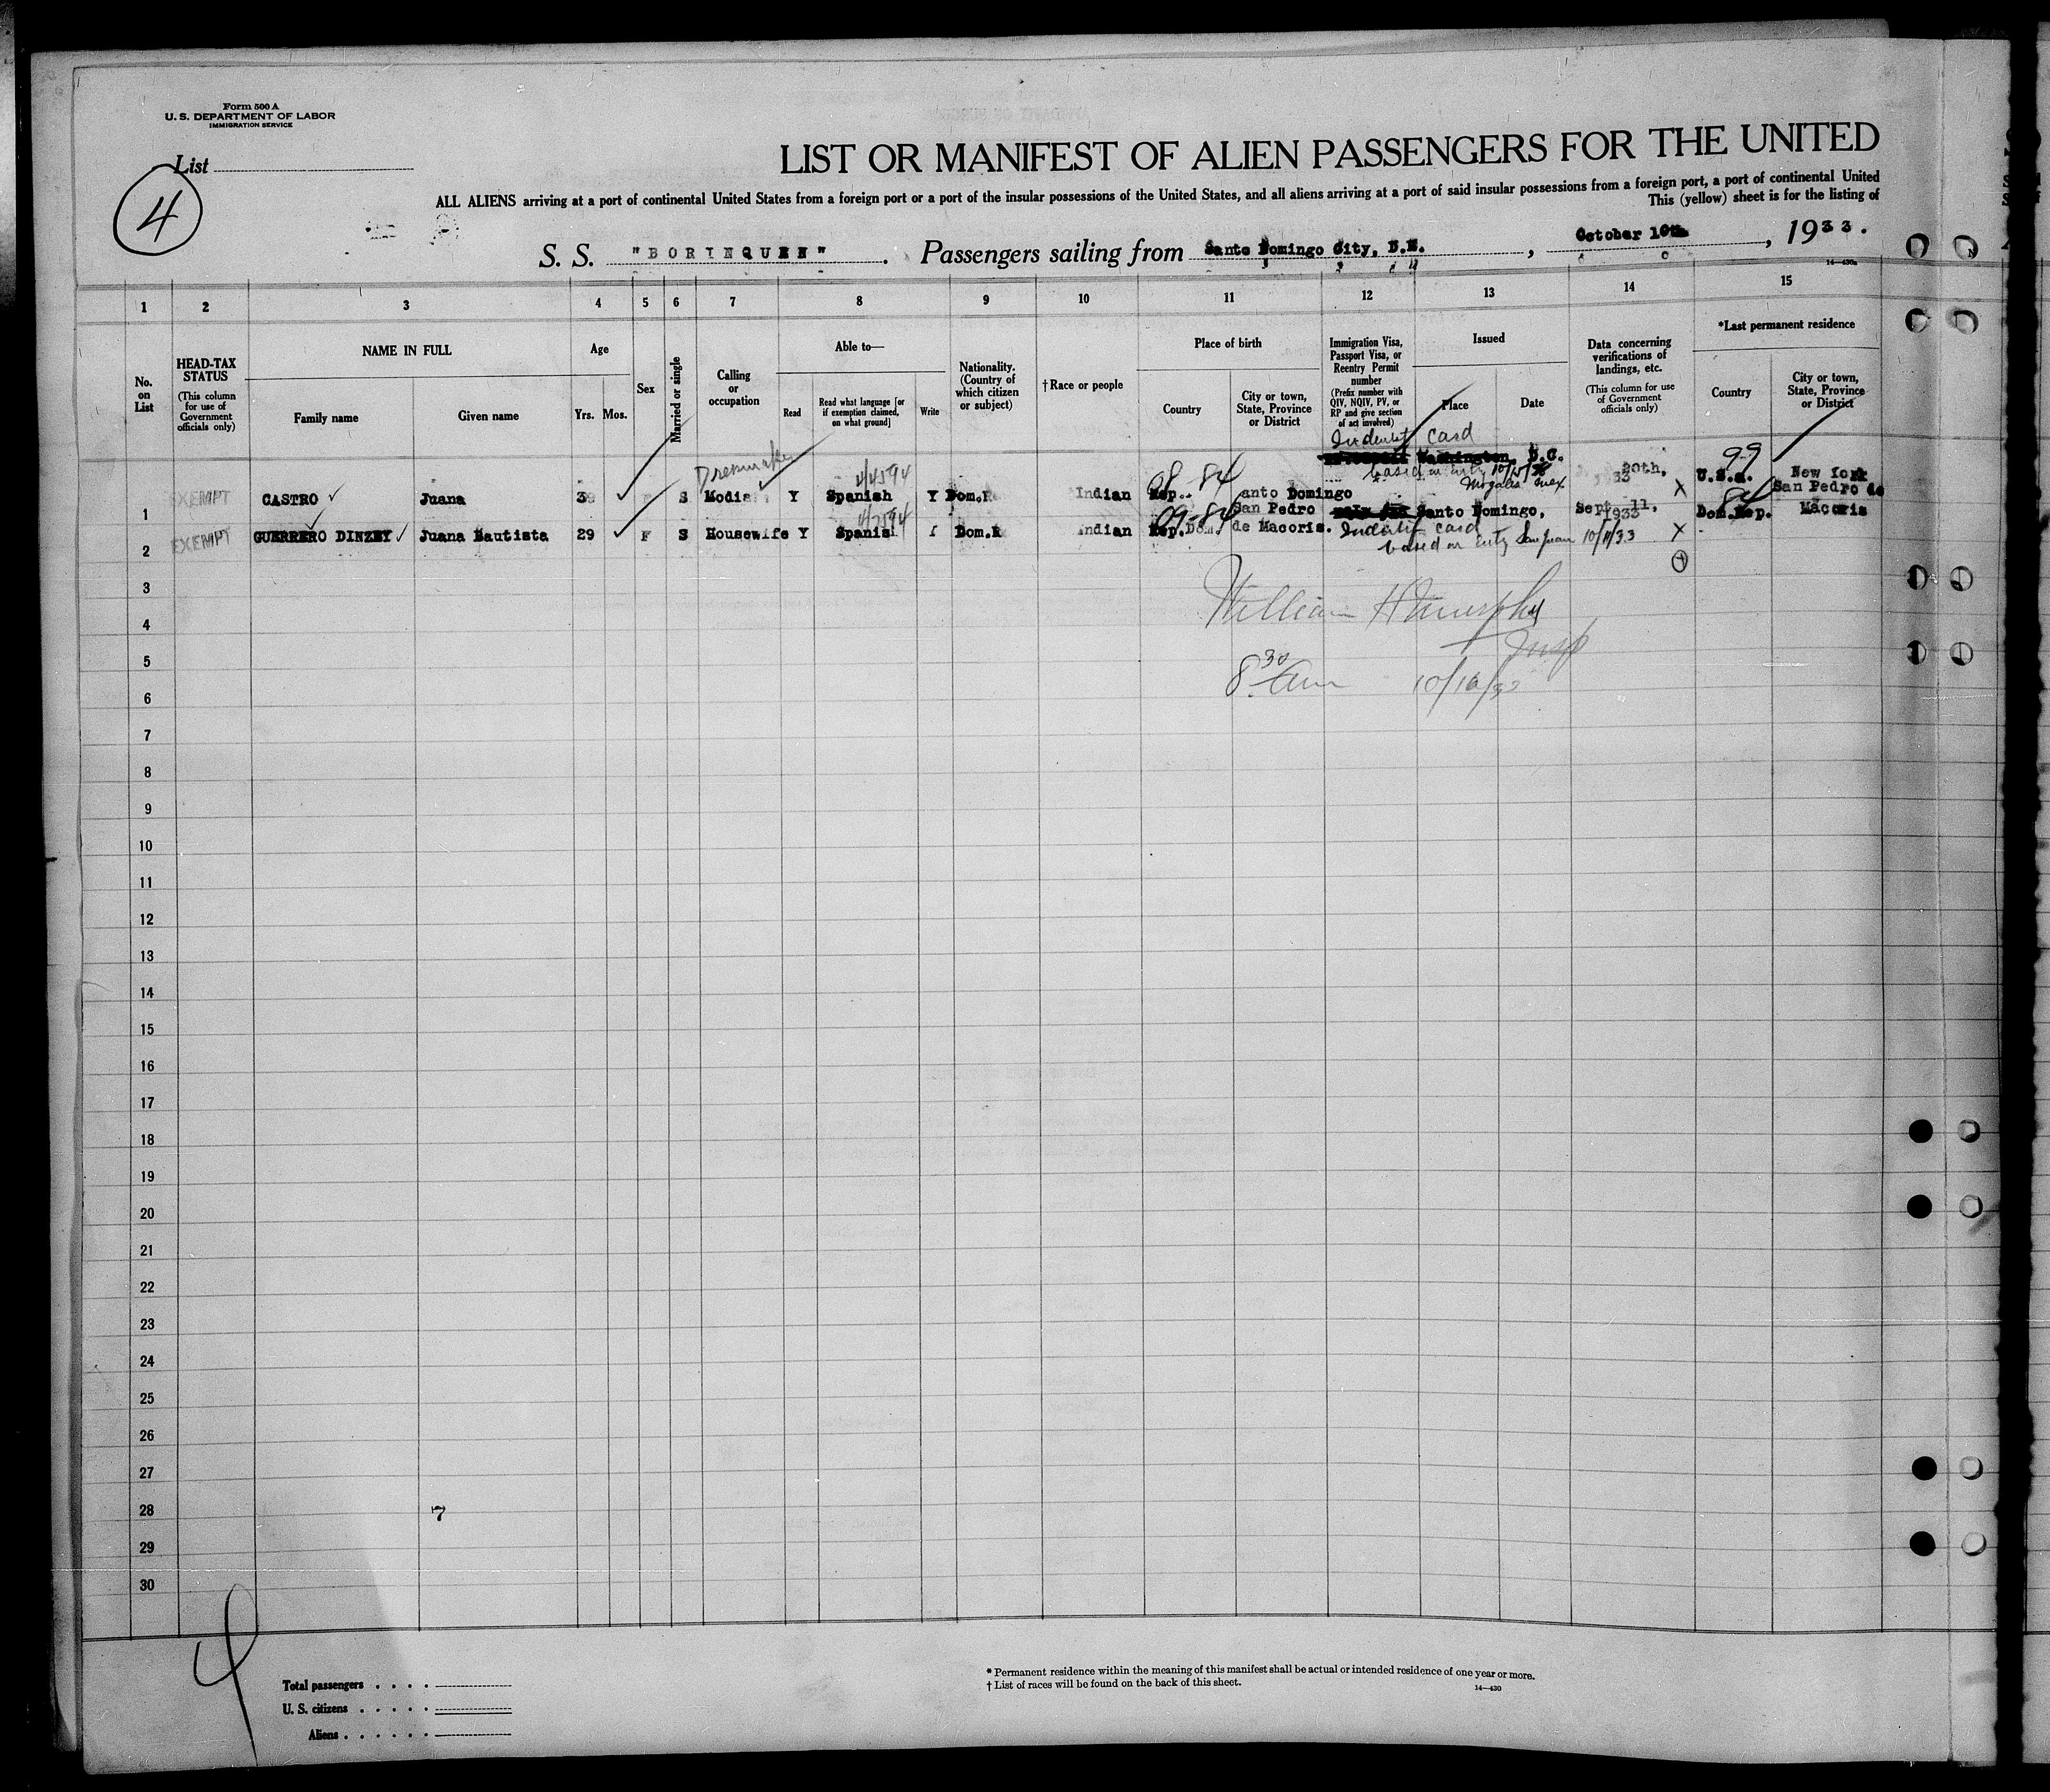 Form 500 A
U. S. DEPARTMENT OF LABOR
IMMIGRATION SERVICE
List
4
LIST OR MANIFEST OF ALIEN PASSENGERS FOR THE UNITED
ALL ALIENS arriving at a port of continental United States from a foreign port or a port of the insular possessions of the United States, and all aliens arriving at a port of said insular possessions from a foreign port, a port of continental United
This (yellow) sheet is for the listing of
S. S. "BORINQUEN" . Passengers sailing from Santo Domingo City, D.R. , October 10th , 1933.
14—430a
1 2 3 4 5 6 7 8 9 10 11 12 13 14 15
No. on List
HEAD-TAX STATUS
(This column for use of Government officials only)
NAME IN FULL
Family name
Given name
Age
Yrs. Mos.
Sex
Married or single
Calling or occupation
Able to—
Read
Read what language [or if exemption claimed, on what ground]
Write
Nationality. (Country of which citizen or subject)
†Race or people
Place of birth
Country
City or town, State, Province or District
Immigration Visa, Passport Visa, or Reentry Permit number
(Prefix number with QIV, NQIV, PV, or RP and give section of act involved)
Issued
Place
Date
Data concerning verifications of landings, etc.
(This column for use of Government officials only)
*Last permanent residence
Country
City or town, State, Province or District
Identif card
Washington, D.C.
Dressmaker
08-84
based on entry
Nogales Mex
20th,
33
99
1 EXEMPT CASTRO Juana S Modis Y Spanish Y Dom.R Indian Rep. anto Domingo X U.S.A. New York
09-84
84
2 EXEMPT GUERRERO DINZEY Juana Bautista 29 F S Housewife Y Spanis Dom.R Indian Rep.Dom. San Pedro de Macoris. Santo Domingo, Sept. 11, 1933 X Dom.Rep. San Pedro de Macoris
Identif card
based on entry San Juan 10/11/33
3
4
William H Murphy
5
Insp
6
8 30 am 10/16/33
7
8
9
10
11
12
13
14
15
16
17
18
19
20
21
22
23
24
25
26
27
28
7
29
30
4
Total passengers
U. S. citizens
Aliens
* Permanent residence within the meaning of this manifest shall be actual or intended residence of one year or more.
† List of races will be found on the back of this sheet.
14—430